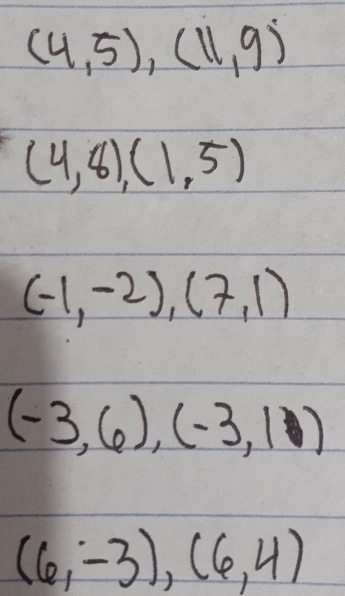 (4,5), (11,9)
(4,8),(1,5)
(-1,-2),(7,1)
(-3,6), (-3,1
(6,-3), (6,4)